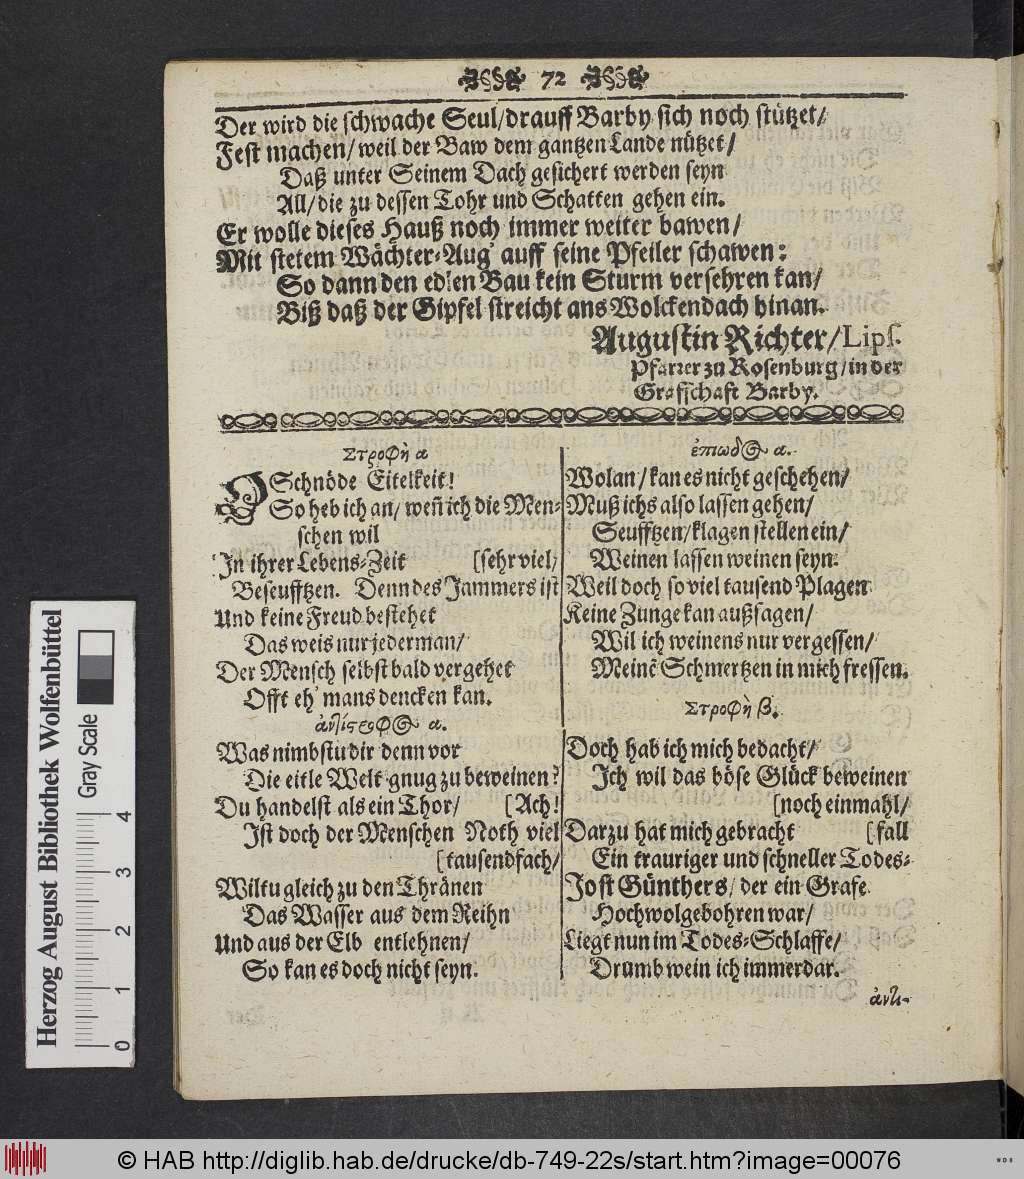 72
Der wird die schwache Seul/drauff Barby sich noch stützet/
Fest machen/ weil der Baw dem gantzen Lande nützet/
Daß unter Seinem Dach gesichert werden seyn
All/ die zu dessen Tohr und Schatten gehen ein.
Er wolle dieses Hauß noch immer weiter bawen/
Mit stetem Wächter-Aug' auff seine Pfeiler schawen:
So dann den edlen Bau kein Sturm versehren kan/
Biß daß der Gipfel streicht ans Wolckendach hinan.
Augustin Richter/ Lips.
Pfarrer zu Rosenburg/ in der
Graffschaft Barby.
Στροφὴ α
O Schnöde Eitelkeit!
So heb ich an/ weñ ich die Men-
schen wil
In ihrer Lebens-Zeit [sehr viel/
Beseufftzen. Denn des Jammers ist
Und keine Freud bestehet
Das weis nur jederman/
Der Mensch selbst bald vergehet
Offt eh' mans dencken kan.
ἀντίστροφ⊕ α.
Was nimbstu dir denn vor
Die eitle Welt gnug zu beweinen?
Du handelst als ein Thor/ [Ach!
Ist doch der Menschen Noth viel
[tausendfach/
Wiltu gleich zu den Thränen
Das Wasser aus dem Reihn
Und aus der Elb entlehnen/
So kan es doch nicht seyn.
ἐπιωδ⊕ α.
Wolan/ kan es nicht geschehen/
Muß ichs also lassen gehen/
Seufftzen/ klagen stellen ein/
Weinen lassen weinen seyn.
Weil doch so viel tausend Plagen
Keine Zunge kan außsagen/
Wil ich weinens nur vergessen/
Meinẽ Schmertzen in mich fressen.
Στροφὴ β.
Doch hab ich mich bedacht/
Ich wil das böse Glück beweinen
[noch einmahl/
Darzu hat mich gebracht [fall
Ein trauriger und schneller Todes-
Jost Günthers/ der ein Grafe
Hochwolgebohren war/
Liegt nun im Todes-Schlaffe/
Drumb wein ich immerdar.
ἀντι-
Herzog August Bibliothek Wolfenbüttel
Gray Scale
0 1 2 3 4
© HAB http://diglib.hab.de/drucke/db-749-22s/start.htm?image=00076